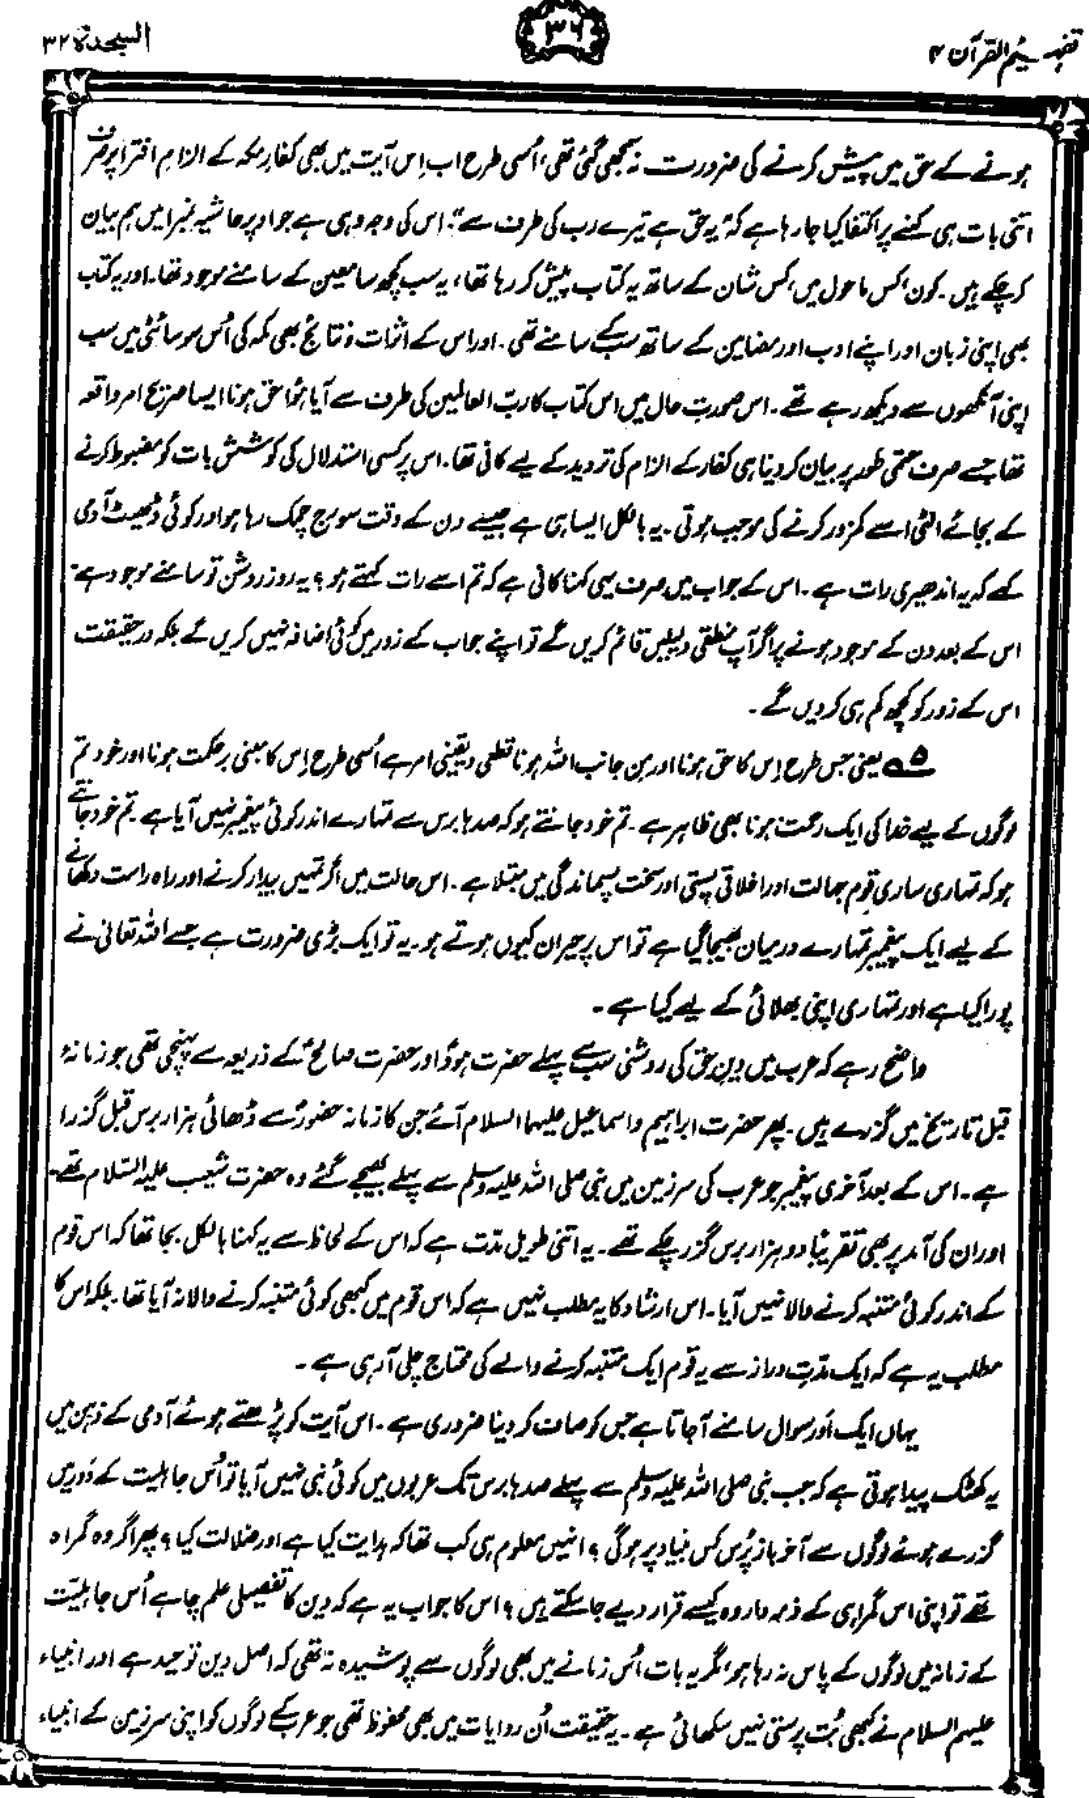 تفہیم القرآن ۴
۳۶
السجدۃ ۳۲
ہونے کے حق میں پیش کرنے کی ضرورت نہ سمجھی گئی تھی، اُسی طرح اب اِس آیت میں بھی کفارِ مکہ کے الزامِ افترا پر صرف
اتنی بات ہی کہنے پر اکتفا کیا جا رہا ہے کہ "یہ حق ہے تیرے رب کی طرف سے"۔ اس کی وجہ وہی ہے جو اوپر حاشیہ نمبر ا میں ہم بیان
کر چکے ہیں۔ کون، کس ماحول میں، کس شان کے ساتھ یہ کتاب پیش کر رہا تھا، یہ سب کچھ سامعین کے سامنے موجود تھا۔ اور یہ کتاب
بھی اپنی زبان اور اپنے ادب اور مضامین کے ساتھ سب کے سامنے تھی۔ اور اس کے اثرات و نتائج بھی مکہ کی اُس سوسائٹی میں سب
اپنی آنکھوں سے دیکھ رہے تھے۔ اس صورتِ حال میں اس کتاب کا ربّ العالمین کی طرف سے آیا ہُوا حق ہونا ایسا صریح امر واقعہ
تھا جسے صرف حتمی طور پر بیان کر دینا ہی کفار کے الزام کی تردید کے لیے کافی تھا۔ اس پر کسی استدلال کی کوشش بات کو مضبوط کرنے
کے بجائے الٹی اسے کمزور کرنے کی موجب ہوتی۔ یہ بالکل ایسا ہی ہے جیسے دن کے وقت سورج چمک رہا ہو اور کوئی ڈھیٹ آدمی
کہے کہ یہ اندھیری رات ہے۔ اس کے جواب میں صرف یہی کہنا کافی ہے کہ تم اسے رات کہتے ہو؟ یہ روزِ روشن تو سامنے موجود ہے۔
اس کے بعد دن کے موجود ہونے پر اگر آپ منطقی دلیلیں قائم کریں گے تو اپنے جواب کے زور میں کوئی اضافہ نہیں کریں گے بلکہ درحقیقت
اس کے زور کو کچھ کم ہی کر دیں گے۔
۵ یعنی جس طرح اِس کا حق ہونا اور مِن جانب اللہ ہونا قطعی و یقینی امر ہے اُسی طرح اِس کا مبنی بر حکمت ہونا اور خود تم
لوگوں کے لیے خدا کی ایک رحمت ہونا بھی ظاہر ہے۔ تم خود جانتے ہو کہ صدہا برس سے تمہارے اندر کوئی پیغمبر نہیں آیا ہے۔ تم خود جانتے
ہو کہ تمہاری ساری قوم جہالت اور اخلاقی پستی اور سخت پسماندگی میں مبتلا ہے۔ اس حالت میں اگر تمہیں بیدار کرنے اور راہِ راست دکھانے
کے لیے ایک پیغمبر تمہارے درمیان بھیجا گیا ہے تو اس پر حیران کیوں ہوتے ہو۔ یہ تو ایک بڑی ضرورت ہے جسے اللہ تعالیٰ نے
پورا کیا ہے اور تمہاری اپنی بھلائی کے لیے کیا ہے۔
واضح رہے کہ عرب میں دینِ حق کی روشنی سب سے پہلے حضرت ہودؑ اور حضرت صالحؑ کے ذریعہ سے پہنچی تھی جو زمانۂ
قبل تاریخ میں گزرے ہیں۔ پھر حضرت ابراہیم و اسماعیل علیہما السلام آئے جن کا زمانہ حضورؐ سے ڈھائی ہزار برس قبل گزرا
ہے۔ اس کے بعد آخری پیغمبر جو عرب کی سرزمین میں نبی صلی اللہ علیہ وسلم سے پہلے بھیجے گئے وہ حضرت شعیب علیہ السّلام تھے۔
اور ان کی آمد پر بھی تقریباً دو ہزار برس گزر چکے تھے۔ یہ اتنی طویل مدّت ہے کہ اس کے لحاظ سے یہ کہنا بالکل بجا تھا کہ اس قوم
کے اندر کوئی متنبہ کرنے والا نہیں آیا۔ اس ارشاد کا یہ مطلب نہیں ہے کہ اس قوم میں کبھی کوئی متنبہ کرنے والا نہ آیا تھا۔ بلکہ اس کا
مطلب یہ ہے کہ ایک مدّتِ دراز سے یہ قوم ایک متنبہ کرنے والے کی محتاج چلی آ رہی ہے۔
یہاں ایک اَور سوال سامنے آجاتا ہے جس کو صاف کر دینا ضروری ہے۔ اس آیت کو پڑھتے ہوئے آدمی کے ذہن میں
یہ کھٹک پیدا ہوتی ہے کہ جب نبی صلی اللہ علیہ وسلم سے پہلے صدہا برس تک عربوں میں کوئی نبی نہیں آیا تو اُس جاہلیت کے دَور میں
گزرے ہوئے لوگوں سے آخر باز پُرس کس بنیاد پر ہوگی؟ انہیں معلوم ہی کب تھا کہ ہدایت کیا ہے اور ضلالت کیا؟ پھر اگر وہ گمراہ
تھے تو اپنی اس گمراہی کے ذمہ دار وہ کیسے قرار دیے جا سکتے ہیں؟ اس کا جواب یہ ہے کہ دین کا تفصیلی علم چاہے اُس جاہلیّت
کے زمانہ میں لوگوں کے پاس نہ رہا ہو، مگر یہ بات اُس زمانے میں بھی لوگوں سے پوشیدہ نہ تھی کہ اصل دین توحید ہے اور انبیاء
علیہم السلام نے کبھی بُت پرستی نہیں سکھائی ہے۔ یہ حقیقت اُن روایات میں بھی محفوظ تھی جو عرب کے لوگوں کو اپنی سرزمین کے انبیاء